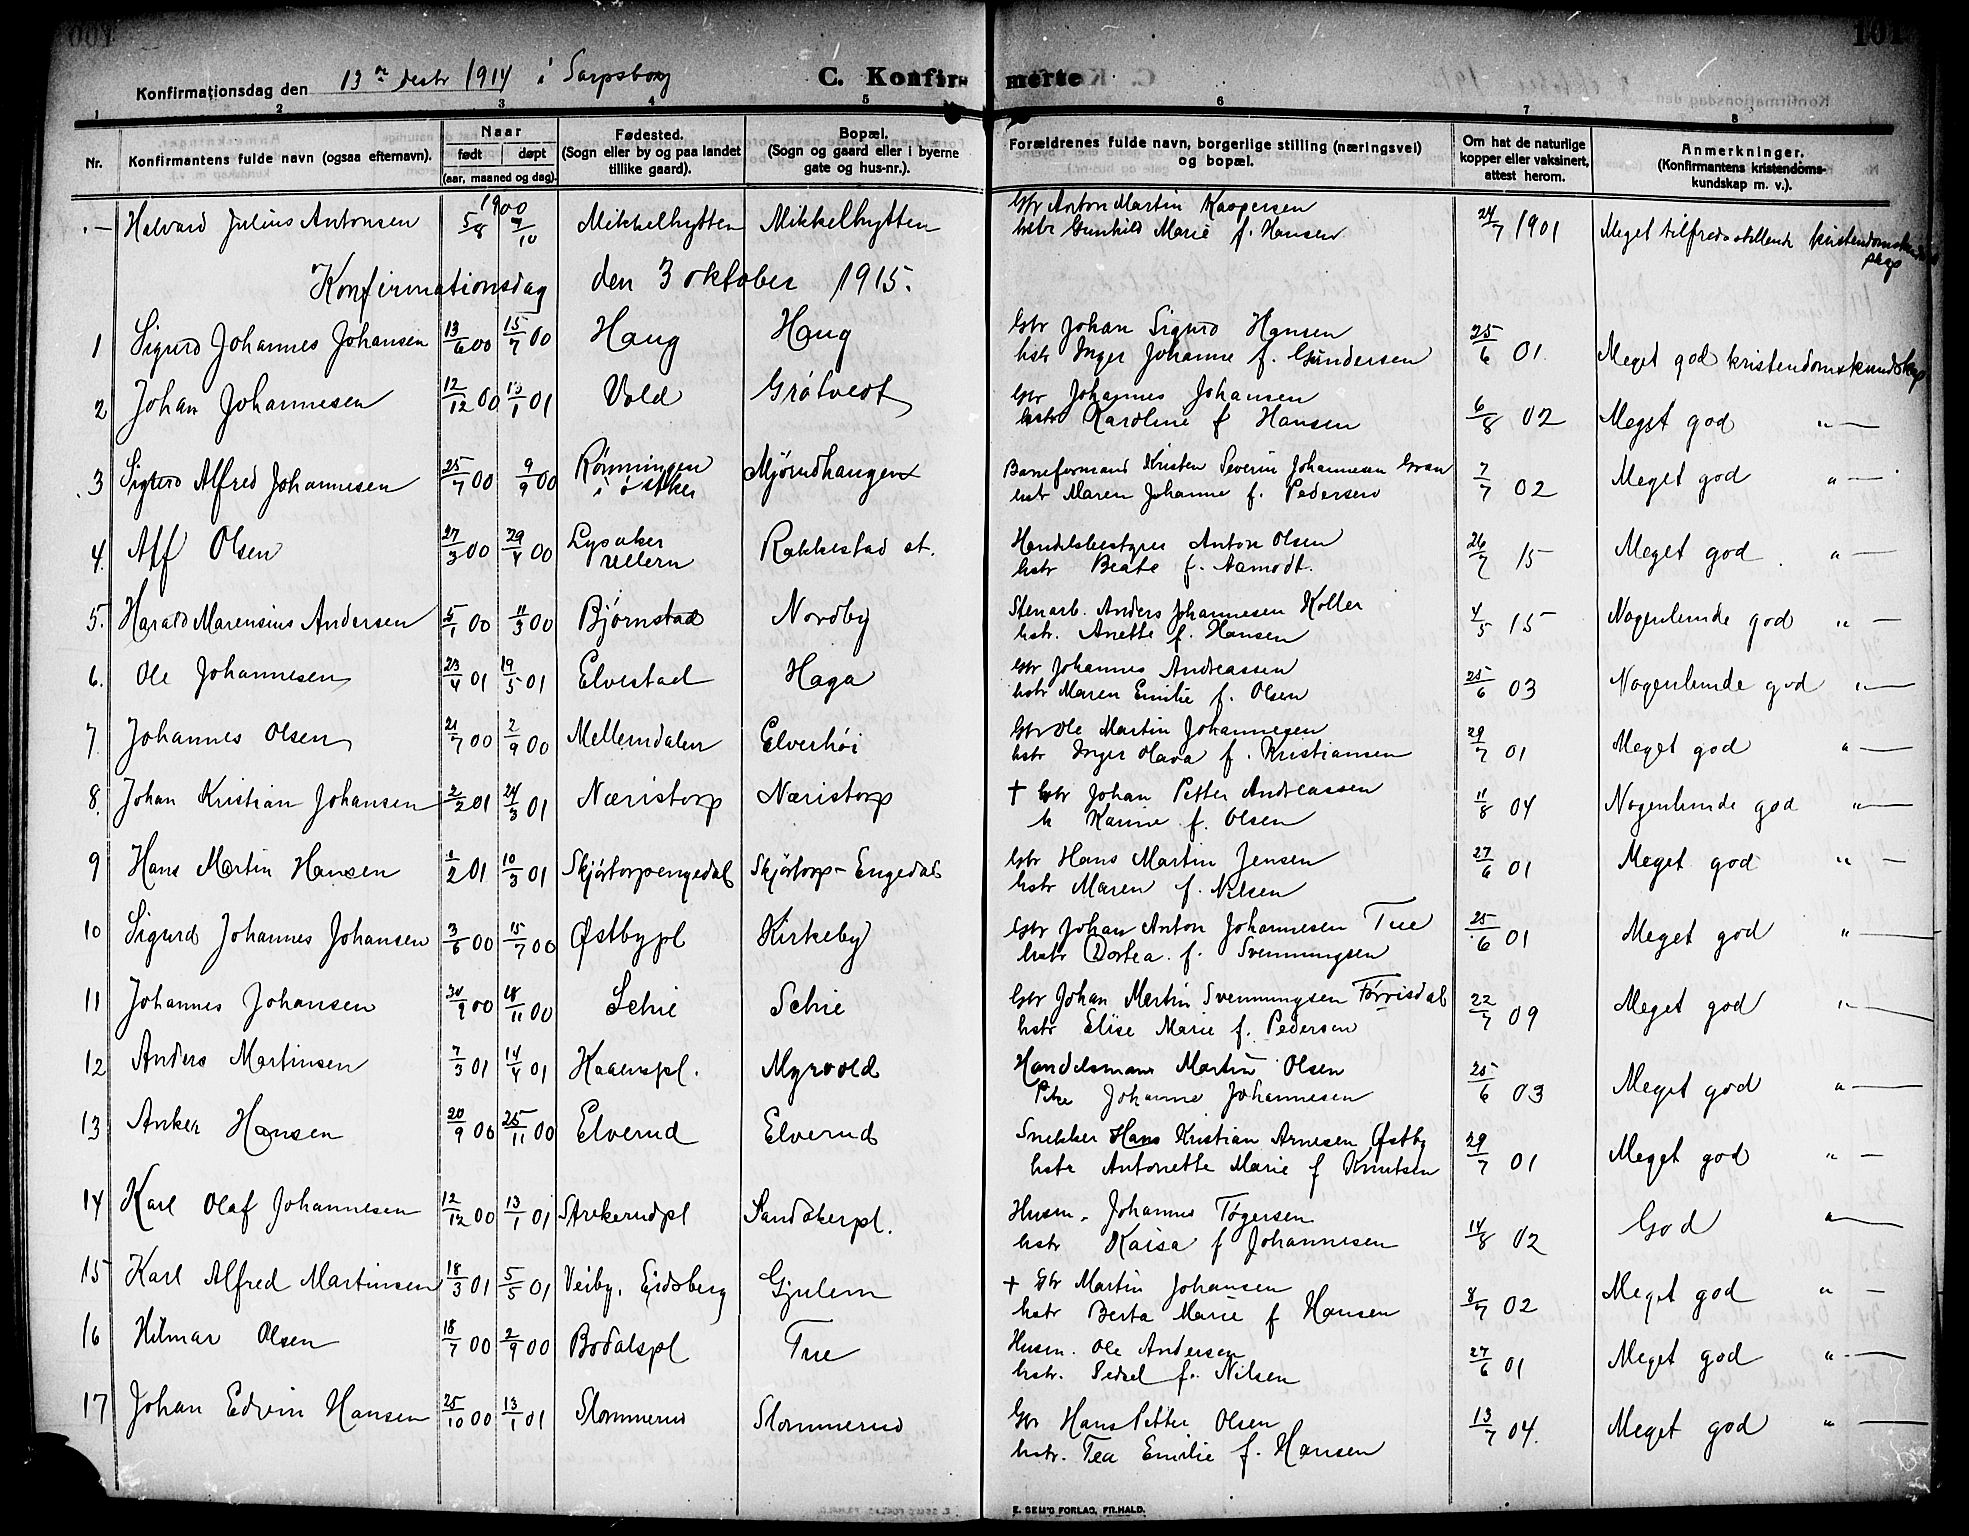 101
Konfirmationsdag den 13 de destr 1914 i Sarpsborg C. Konfirmerte
1 2 3 4 5 6 7 8
Nr. Konfirmantens fulde navn (ogsaa efternavn). Naar født døpt (aar, maaned og dag). Fødested. (Sogn eller by og paa landet tillike gaard). Bopæl. (Sogn og gaard eller i byerne gate og hus-nr.). Forældrenes fulde navn, borgerlige stilling (næringsvei) og bopæl. Om hat de naturlige kopper eller vaksinert, attest herom. Anmerkninger. (Konfirmantens kristendoms-kundskap m. v.).
— Halvard Julius Antonsen 1900 5/8 7/10 Mikkelhytten Mikkelhytten Gbr Anton Martin Kaspersen
hstr Gunhild Marie f. Hansen 24/7 1901 Meget tilfredsstillende kristendomskundskap
Konfirmationsdag den 3 oktober 1915.
1 Sigurd Johannes Johansen 13/6 00 15/7 00 Haug Haug Gbr Johan Sigurd Hansen
hstr Inger Johanne f. Gundersen 25/6 01. Meget god kristendomskundskap
2 Johan Johannesen 12/12 00 13/1 01 Vold Grøtvedt Gbr Johannes Johansen
hstr Karoline f Hansen 6/8 02 Meget god " —
3 Sigurd Alfred Johannesen 25/7 00 9/9 00 Rønningen i Østker Mjørudhaugen Baneformand Kristen Severin Johannesen Gran
hstr Maren Johanne f. Pedersen 7/7 02 Meget god " —
4. Alf Olsen 27/3 00 29/4 00 Lysaker Ullern Rakkestad st. Handelsbestyrer Anton Olsen
hstr Beate f. Aamodt. 26/7 15 Meget god " —
5. Harald Marensius Andersen 5/1 00 11/3 00 Bjørnstad Nordby Stenarb. Anders Johannesen Koller
hstr. Anette f. Hansen 4/5 15 Nogenlunde god " —
6. Ole Johannesen 23/4 01 19/5 01 Elvestad Haga Gbr Johannes Andreassen
hstr Maren Emilie f. Olsen 25/6 03 Nogenlunde god " —
7 Johannes Olsen 21/7 00 2/9 00 Mellemdalen Elverhøi Gbr Ole Martin Johannesen
hstr Inger Olava f. Kristiansen 29/7 01 Meget god " —
8. Johan Kristian Johansen 2/2 01 24/3 01 Næristorp Næristorp † Gbr Johan Petter Andreassen
h Karine f. Olsen 11/8 04 Nogenlunde god " —
9 Hans Martin Hansen 1/2 01 10/3 01 Skjørtorpengedal Skjørtorp-Engedal Gbr Hans Martin Jensen
hstr Maren f. Nilsen 27/6 01 Meget god " —
10 Sigurd Johannes Johansen 3/6 00 15/7 00 Østbypl Kirkeby Gbr Johan Anton Johannesen Tue
hstr Dortea f. Svenningsen 25/6 01 Meget god " —
11 Johannes Johansen 30/9 00 18/11 00 Schie Schie Gbr Johan Martin Svenningsen Førrisdal
hstr Elise Marie f. Pedersen 22/7 09 Meget god " —
12 Anders Martinsen 7/3 01 14/4 01 Haaenspl. Myrvold Handelsmann Martin Olsen
Pike Johanne Johannesen 25/6 03 Meget god " —
13 Anker Hansen 20/9 00 25/11 00 Elverud Elverud Snekker Hans Kristian Arnesen Østby
hstr Antonette Marie f Knutsen 29/7 01 Meget god " —
14 Karl Olaf Johannesen 12/12 00 13/1 01 Strekerudpl Sandakerpl. Husm. Johannes Tøgersen
hstr Kaisa f Johannesen 14/8 02 God " —
15 Karl Alfred Martinsen 18/3 01 5/5 01 Veiby, Eidsberg Gjulem † Gbr Martin Johansen
hstr Berta Marie f Hansen 8/7 02 Meget god " —
16 Hilmar Olsen 18/7 00 2/9 00 Bodalspl Tue Husm. Ole Andersen
hstr. Sedsel f. Nilsen 27/6 01 Meget god " —
17 Johan Edvin Hansen 25/10 00 13/1 01 Slommerud Slommerud Gbr Hans Petter Olsen
hstr. Tea Emilie f. Hansen 13/7 04. Meget god " —
E. SEM'S FORLAG, FR.HALD.